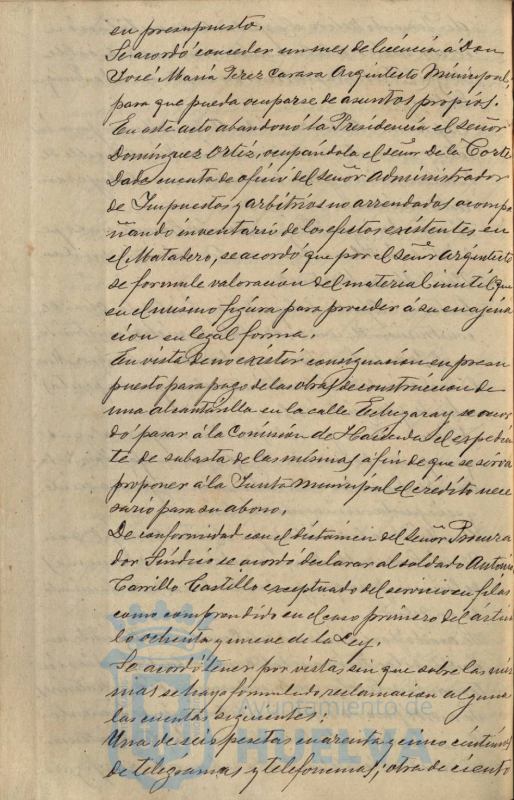 en presupuesto.
Se acordó conceder un mes de licencia á Don
José María Perez Carasa Arquitecto Municipal,
para que pueda ocuparse de asuntos própios.
En este acto abandonó la Presidencia el Señor
Domínguez Ortiz, ocupándola el señor de la Corte
Dada cuenta de oficio del Señor Administrador
de Impuestos y arbitrios no arrendados acompa
ñando inventario de los efectos existentes en
el Matadero, se acordó que por el señor Arquitecto
se formule valoración del material inutil que
en el mismo figura para proceder á su enajena
cion en legal forma.
En vista de no existir consignación en presu
puesto para pago de las obras de construcción de
una alcantarilla en la calle Echegaray se acor
dó pasar á la Comisión de Hacienda el expedien
te de subasta de las mismas á fin de que se sirva
proponer á la Junta Municipal el crédito nece
sario para su abono.
De conformidad con el dictámen del Señor Procura
dor Síndico se acordó declarar al soldado Antonio
Carrillo Castillo exceptuado del servicio en filas
como comprendido en el caso primero del artícu
lo ochenta y nueve de la Ley.
Se acordó tener por vistas sin que sobre las mis
mas se haya formulado reclamacion alguna
las cuentas siguientes:
Una de seis pesetas cuarenta y cinco céntimos
de telegramas y telefonemas; otra de ciento
Ayuntamiento de
HUELVA